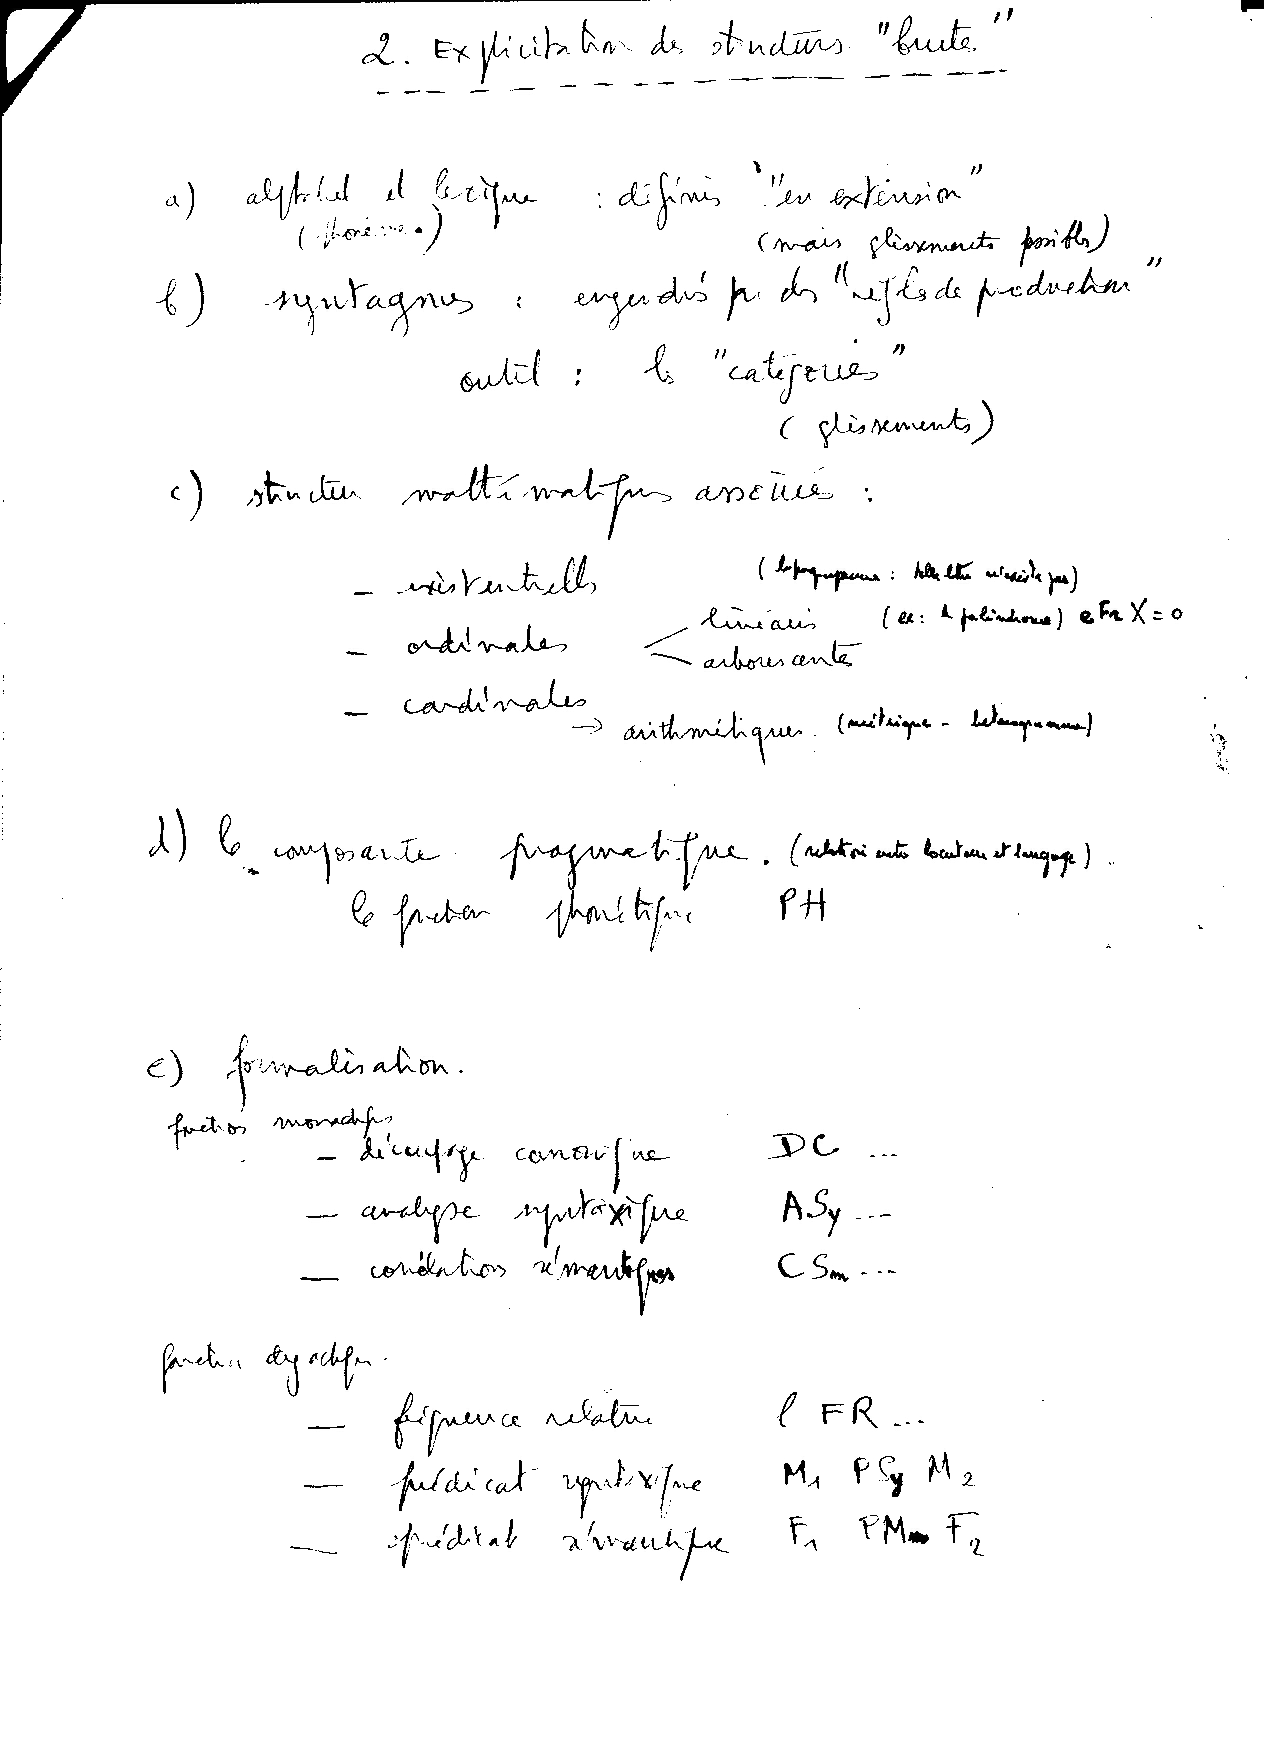 2. Explicitation des structures "brutes"
a) alphabet et lexique : définis "en extension"
(phonèmes) (mais glissements possibles)
b) syntagmes : engendrés par des "règles de production"
outil : les "catégories"
(glissements)
c) structures mathématiques associées :
- existentielles (lipogrammes : telle lettre n'existe pas)
- ordinales linéaires (ex : le palindrome) e FR X = 0
arborescentes
- cardinales
→ arithmétiques. (métrique - hétérogramme)
d) la composante pragmatique. (relation entre locuteur et langage).
la fonction phonétique PH
e) formalisation.
fonctions monadiques
- découpage canonique DC ...
- analyse syntaxique ASy ...
- corrélations sémantiques CSm ...
fonctions dyadiques.
- fréquence relative l FR ...
- prédicat syntaxique M1 PSy M2
- prédicat sémantique F1 F2